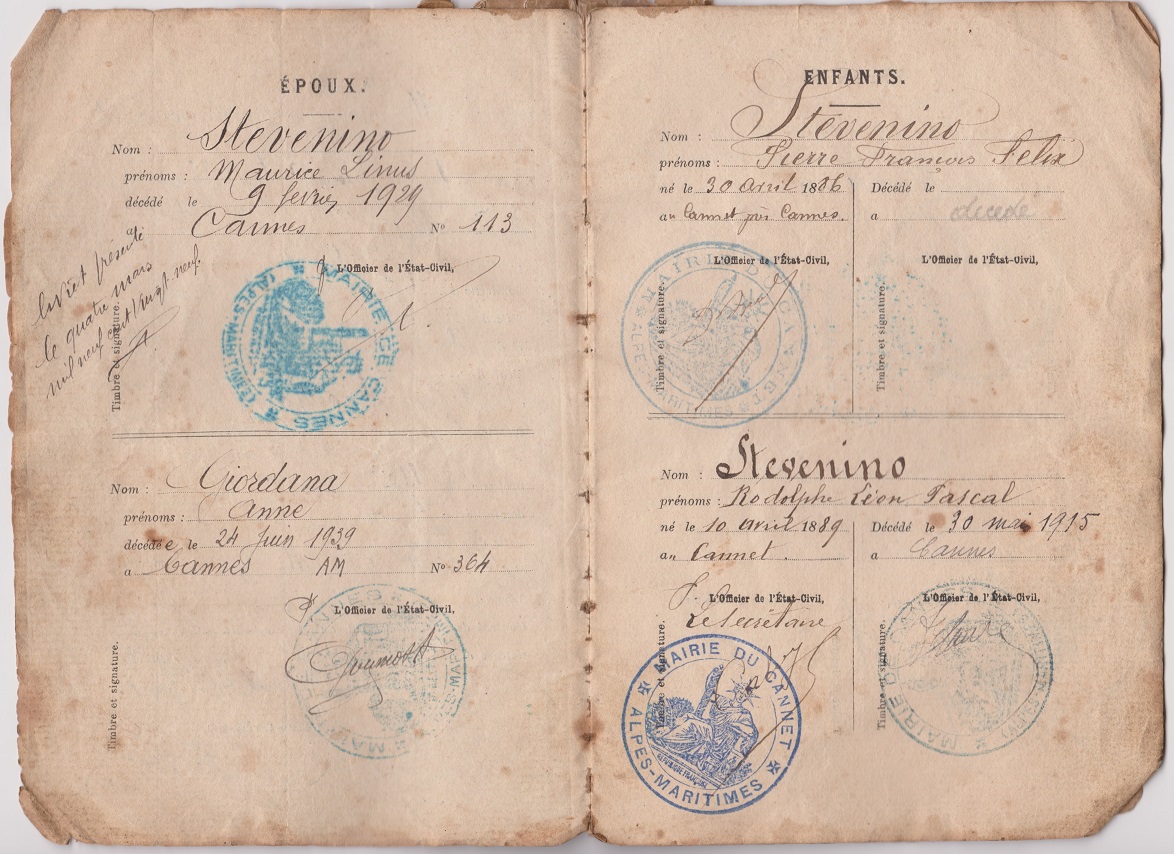 ÉPOUX.
Nom : Stevenino
prénoms : Maurice Linus
décédé le 9 fevrier 1929
a Cannes No 113
livret présenté
le quatre mars
mil neuf cent vingt neuf.
L'Officier de l'État-Civil,
Timbre et signature.
MAIRIE CANNES
(ALPES-MARITIMES)
Nom : Giordana
prénoms : Anne
décédée le 24 Juin 1939
a Cannes AM No 364
L'Officier de l'État-Civil,
Timbre et signature.
ENFANTS.
Nom : Stevenino
prénoms : Pierre François Felix
né le 30 avril 1886 Décédé le
au Cannet près Cannes. a decedé
L'Officier de l'État-Civil, L'Officier de l'État-Civil,
Timbre et signature. Timbre et signature.
MAIRIE DU CANNET
ALPES-MARITIMES
Nom : Stevenino
prénoms : Rodolphe Léon Pascal
né le 10 avril 1889 Décédé le 30 mai 1915
au Cannet. a Cannes
L'Officier de l'État-Civil, L'Officier de l'État-Civil,
Le Secrétaire
Timbre et signature. Timbre et signature.
MAIRIE DU CANNET
RÉPUBLIQUE FRANÇAISE
ALPES-MARITIMES